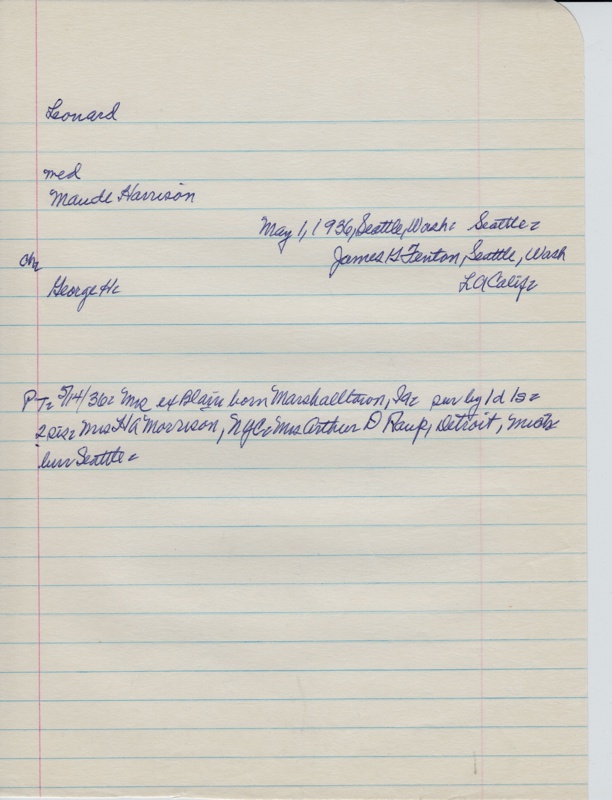 Leonard
med
Maude Harrison
May 1, 1936, Seattle, Wash. Seattle.
Ch.
James H Fenton, Seattle, Wash
George H.
LA Calif.
PT. 5/14/36. Mr. ex Blain born Marshalltown, Ia. sur by 1 d 1 s.
2 sis. Mrs H A Morrison, NYC. Mrs Arthur D Raup, Detroit, Mich.
bur Seattle.